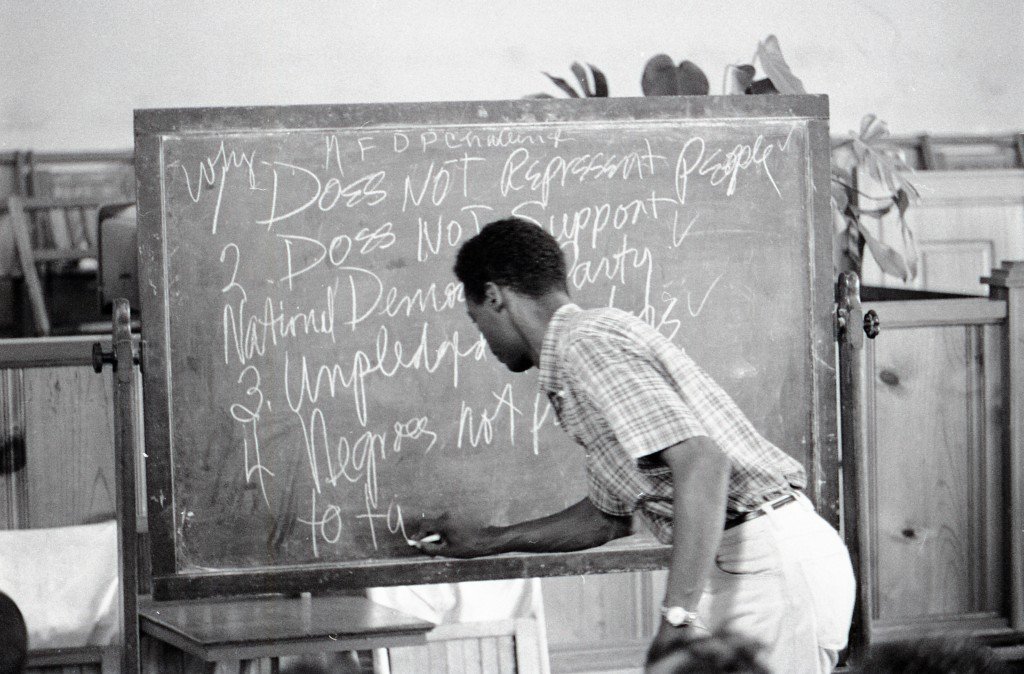 M F D P Challenge
Why 1 Does NOT Represent People ✓
2. Does NOT Support ✓
National Democ Party
3. Unpledged ✓
4 Negroes not
to